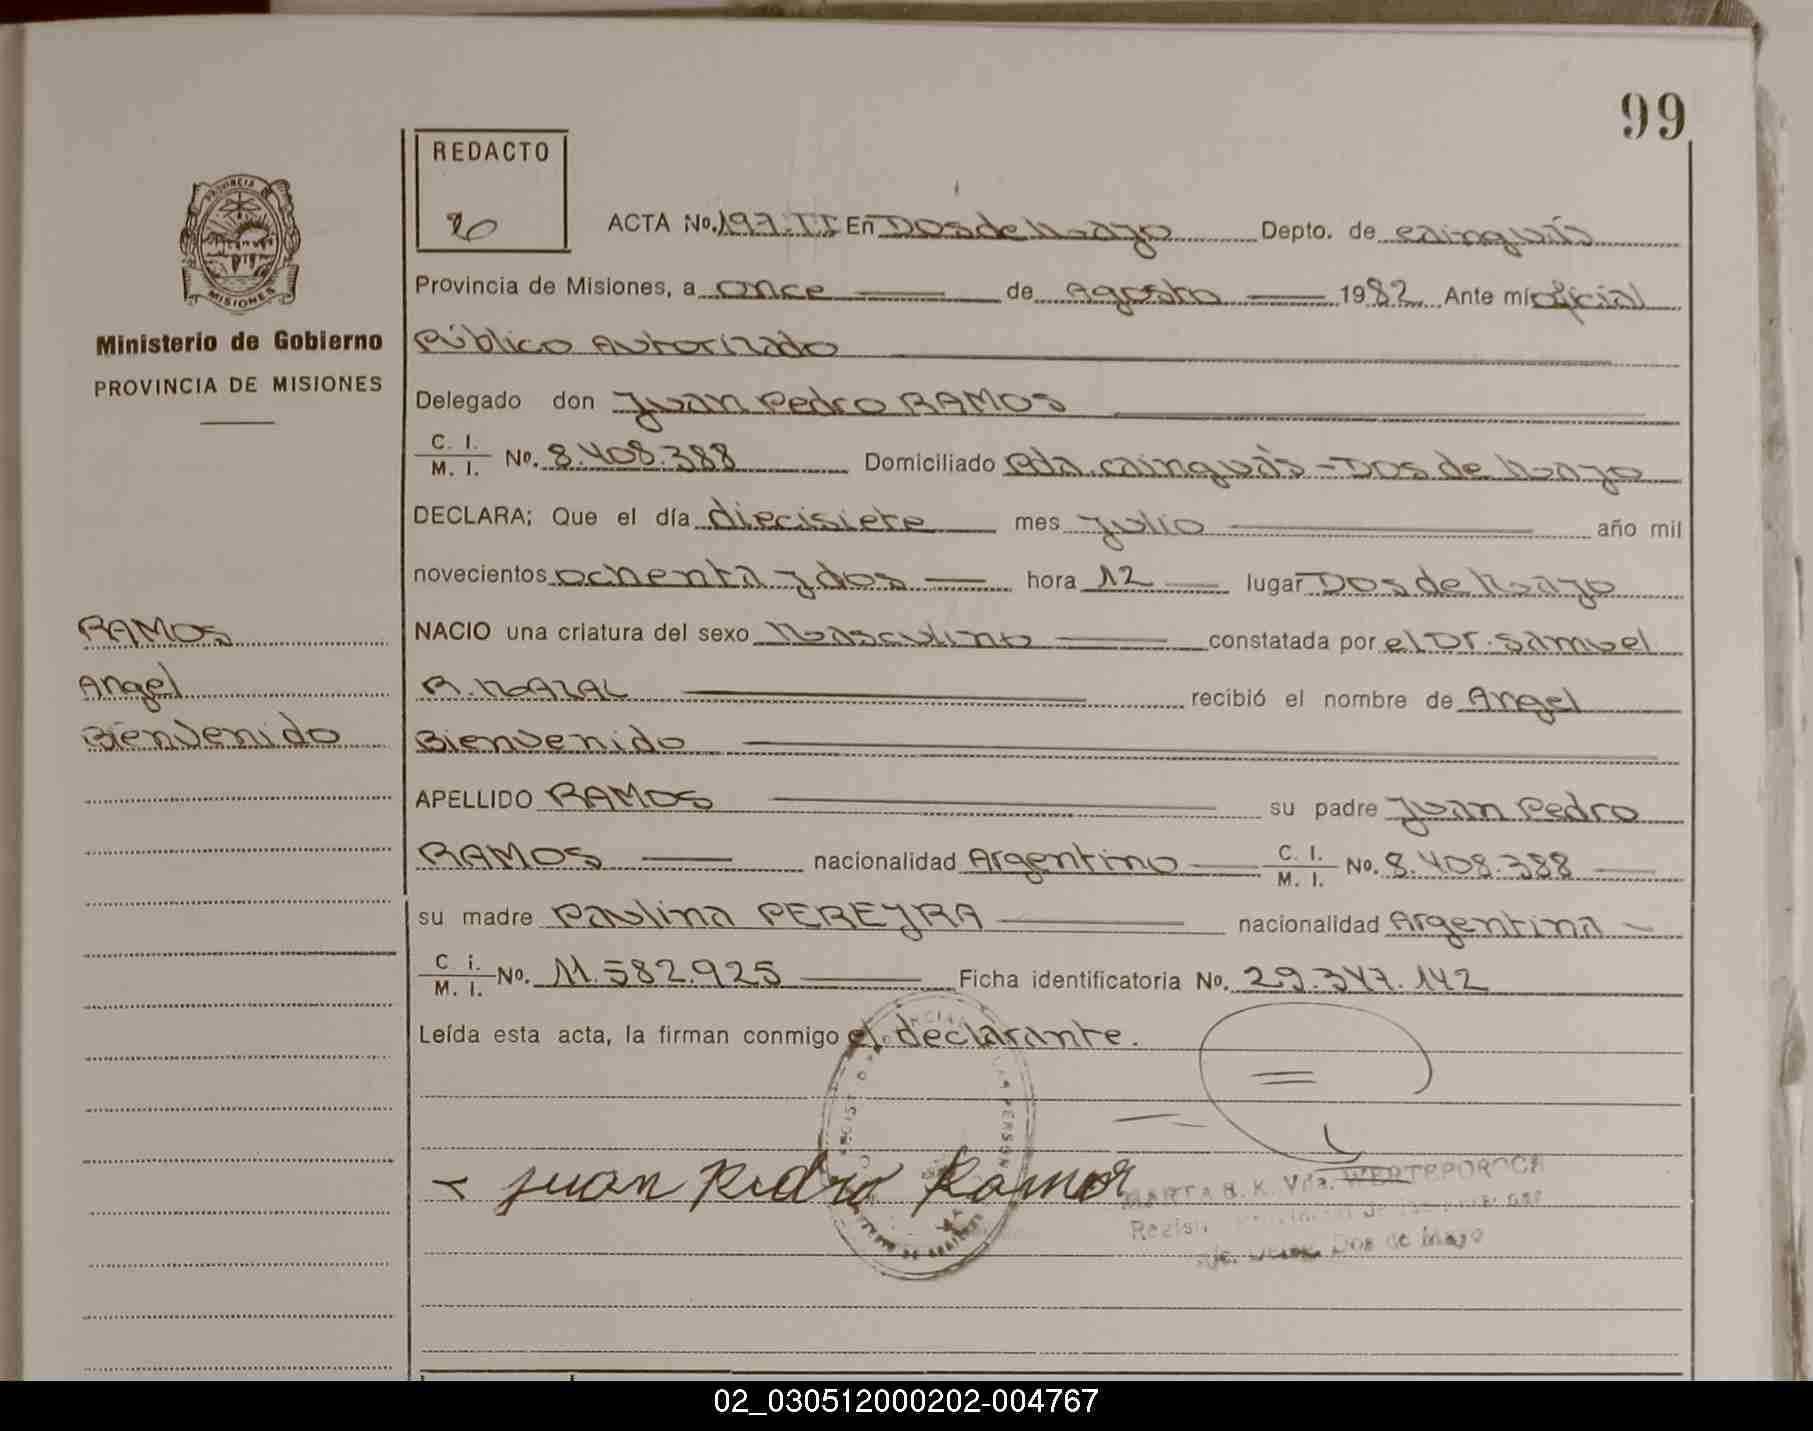 99
REDACTO
PROVINCIA
MISIONES
ACTA No. 197.II En Dos de Mayo Depto. de cainguás
Provincia de Misiones, a once de Agosto 1982 Ante mí oficial
Ministerio de Gobierno
PROVINCIA DE MISIONES
Público Autorizado
Delegado don Juan Pedro RAMOS
C. I.
M. I. No. 8.408.388 Domiciliado Pda. cainguás - Dos de Mayo
DECLARA; Que el día diecisiete mes Julio año mil
novecientos ochenta y dos hora 12 lugar Dos de Mayo
RAMOS
Angel
Bienvenido
NACIO una criatura del sexo Masculino constatada por el Dr. Samuel
R. MAZAL recibió el nombre de Angel
Bienvenido
APELLIDO RAMOS su padre Juan Pedro
RAMOS nacionalidad Argentino C. I.
M. I. No. 8.408.388
su madre Paulina PEREYRA nacionalidad Argentina
C i.
M. I. No. 11.582.925 Ficha identificatoria No. 29.347.142
Leída esta acta, la firman conmigo el declarante.
Juan Pedro Ramos
MARTA B. K. Vda. WERTEPOROCH
Dos de Mayo
02_030512000202-004767